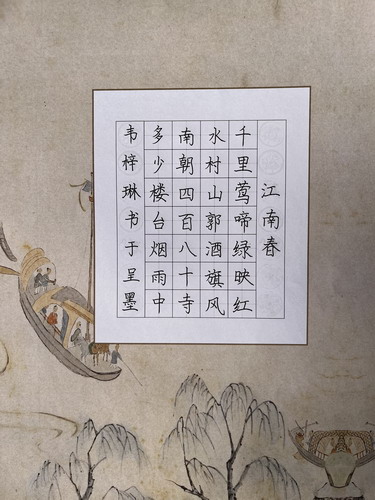 江南春
千里莺啼绿映红
水村山郭酒旗风
南朝四百八十寺
多少楼台烟雨中
韦梓琳书于呈墨